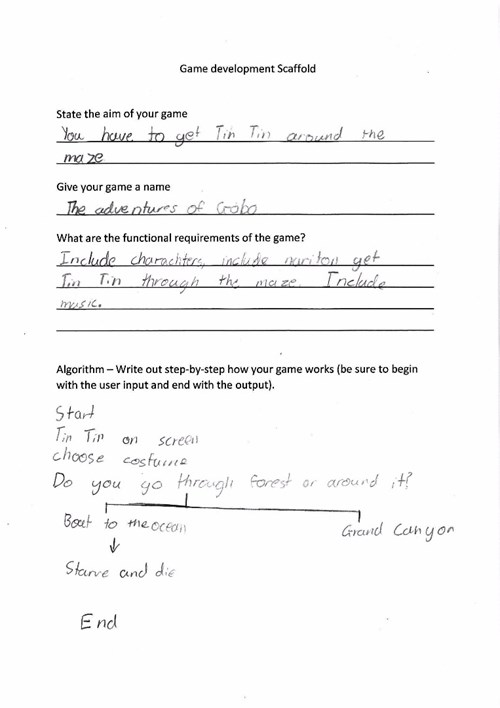 Game development Scaffold
State the aim of your game
You have to get Tin Tin around the
maze
Give your game a name
The adventures of Gobo
What are the functional requirements of the game?
Include charachters, include nariton get
Tin Tin through the maze. Include
music.
Algorithm – Write out step-by-step how your game works (be sure to begin
with the user input and end with the output).
Start
Tin Tin on screen
choose costume
Do you go through forest or around it?
Boat to the ocean
Grand Canyon
Starve and die
End